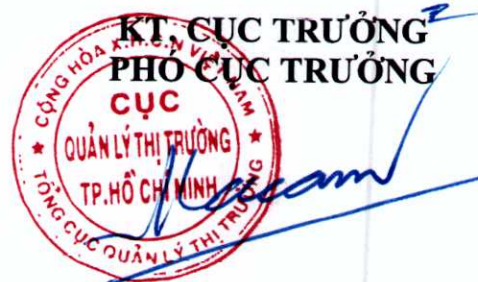 KT. CỤC TRƯỞNG
PHÓ CỤC TRƯỞNG
CỘNG HÒA X.H.C.N VIỆT NAM
CỤC
QUẢN LÝ THỊ TRƯỜNG
TP.HỒ CHÍ MINH
TỔNG CỤC QUẢN LÝ THỊ TRƯỜNG